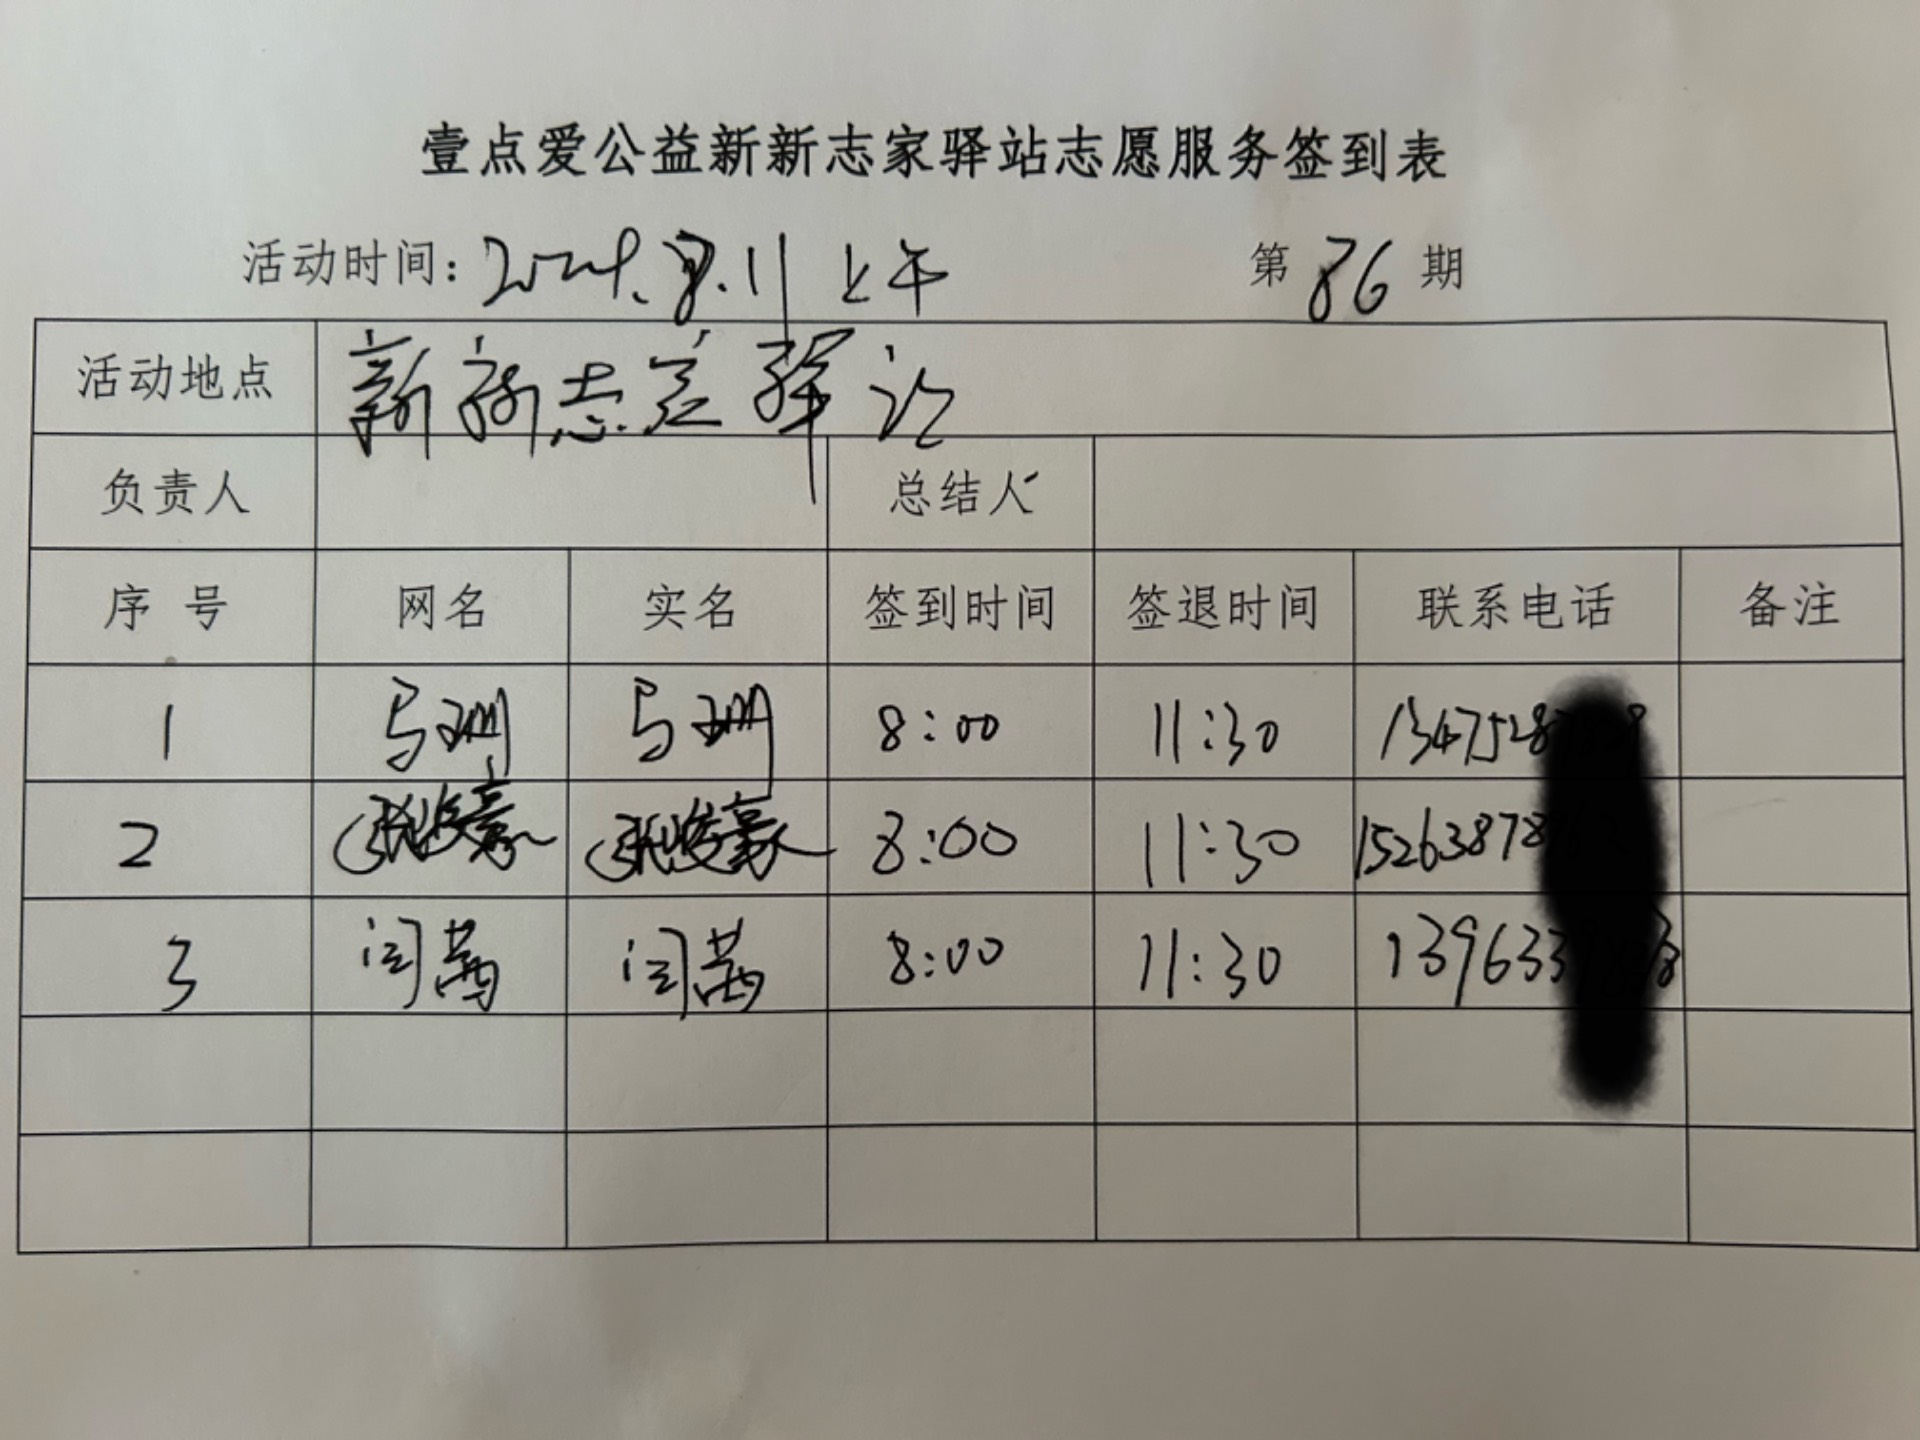 壹点爱公益新新志家驿站志愿服务签到表
活动时间: 2024.8.11 上午 第 86 期
活动地点 新新志家驿站
负责人 总结人
序号 网名 实名 签到时间 签退时间 联系电话 备注
1 马珊 马珊 8:00 11:30 1347528
2 张俊豪 张俊豪 8:00 11:30 15263878
3 闫茜 闫茜 8:00 11:30 139633